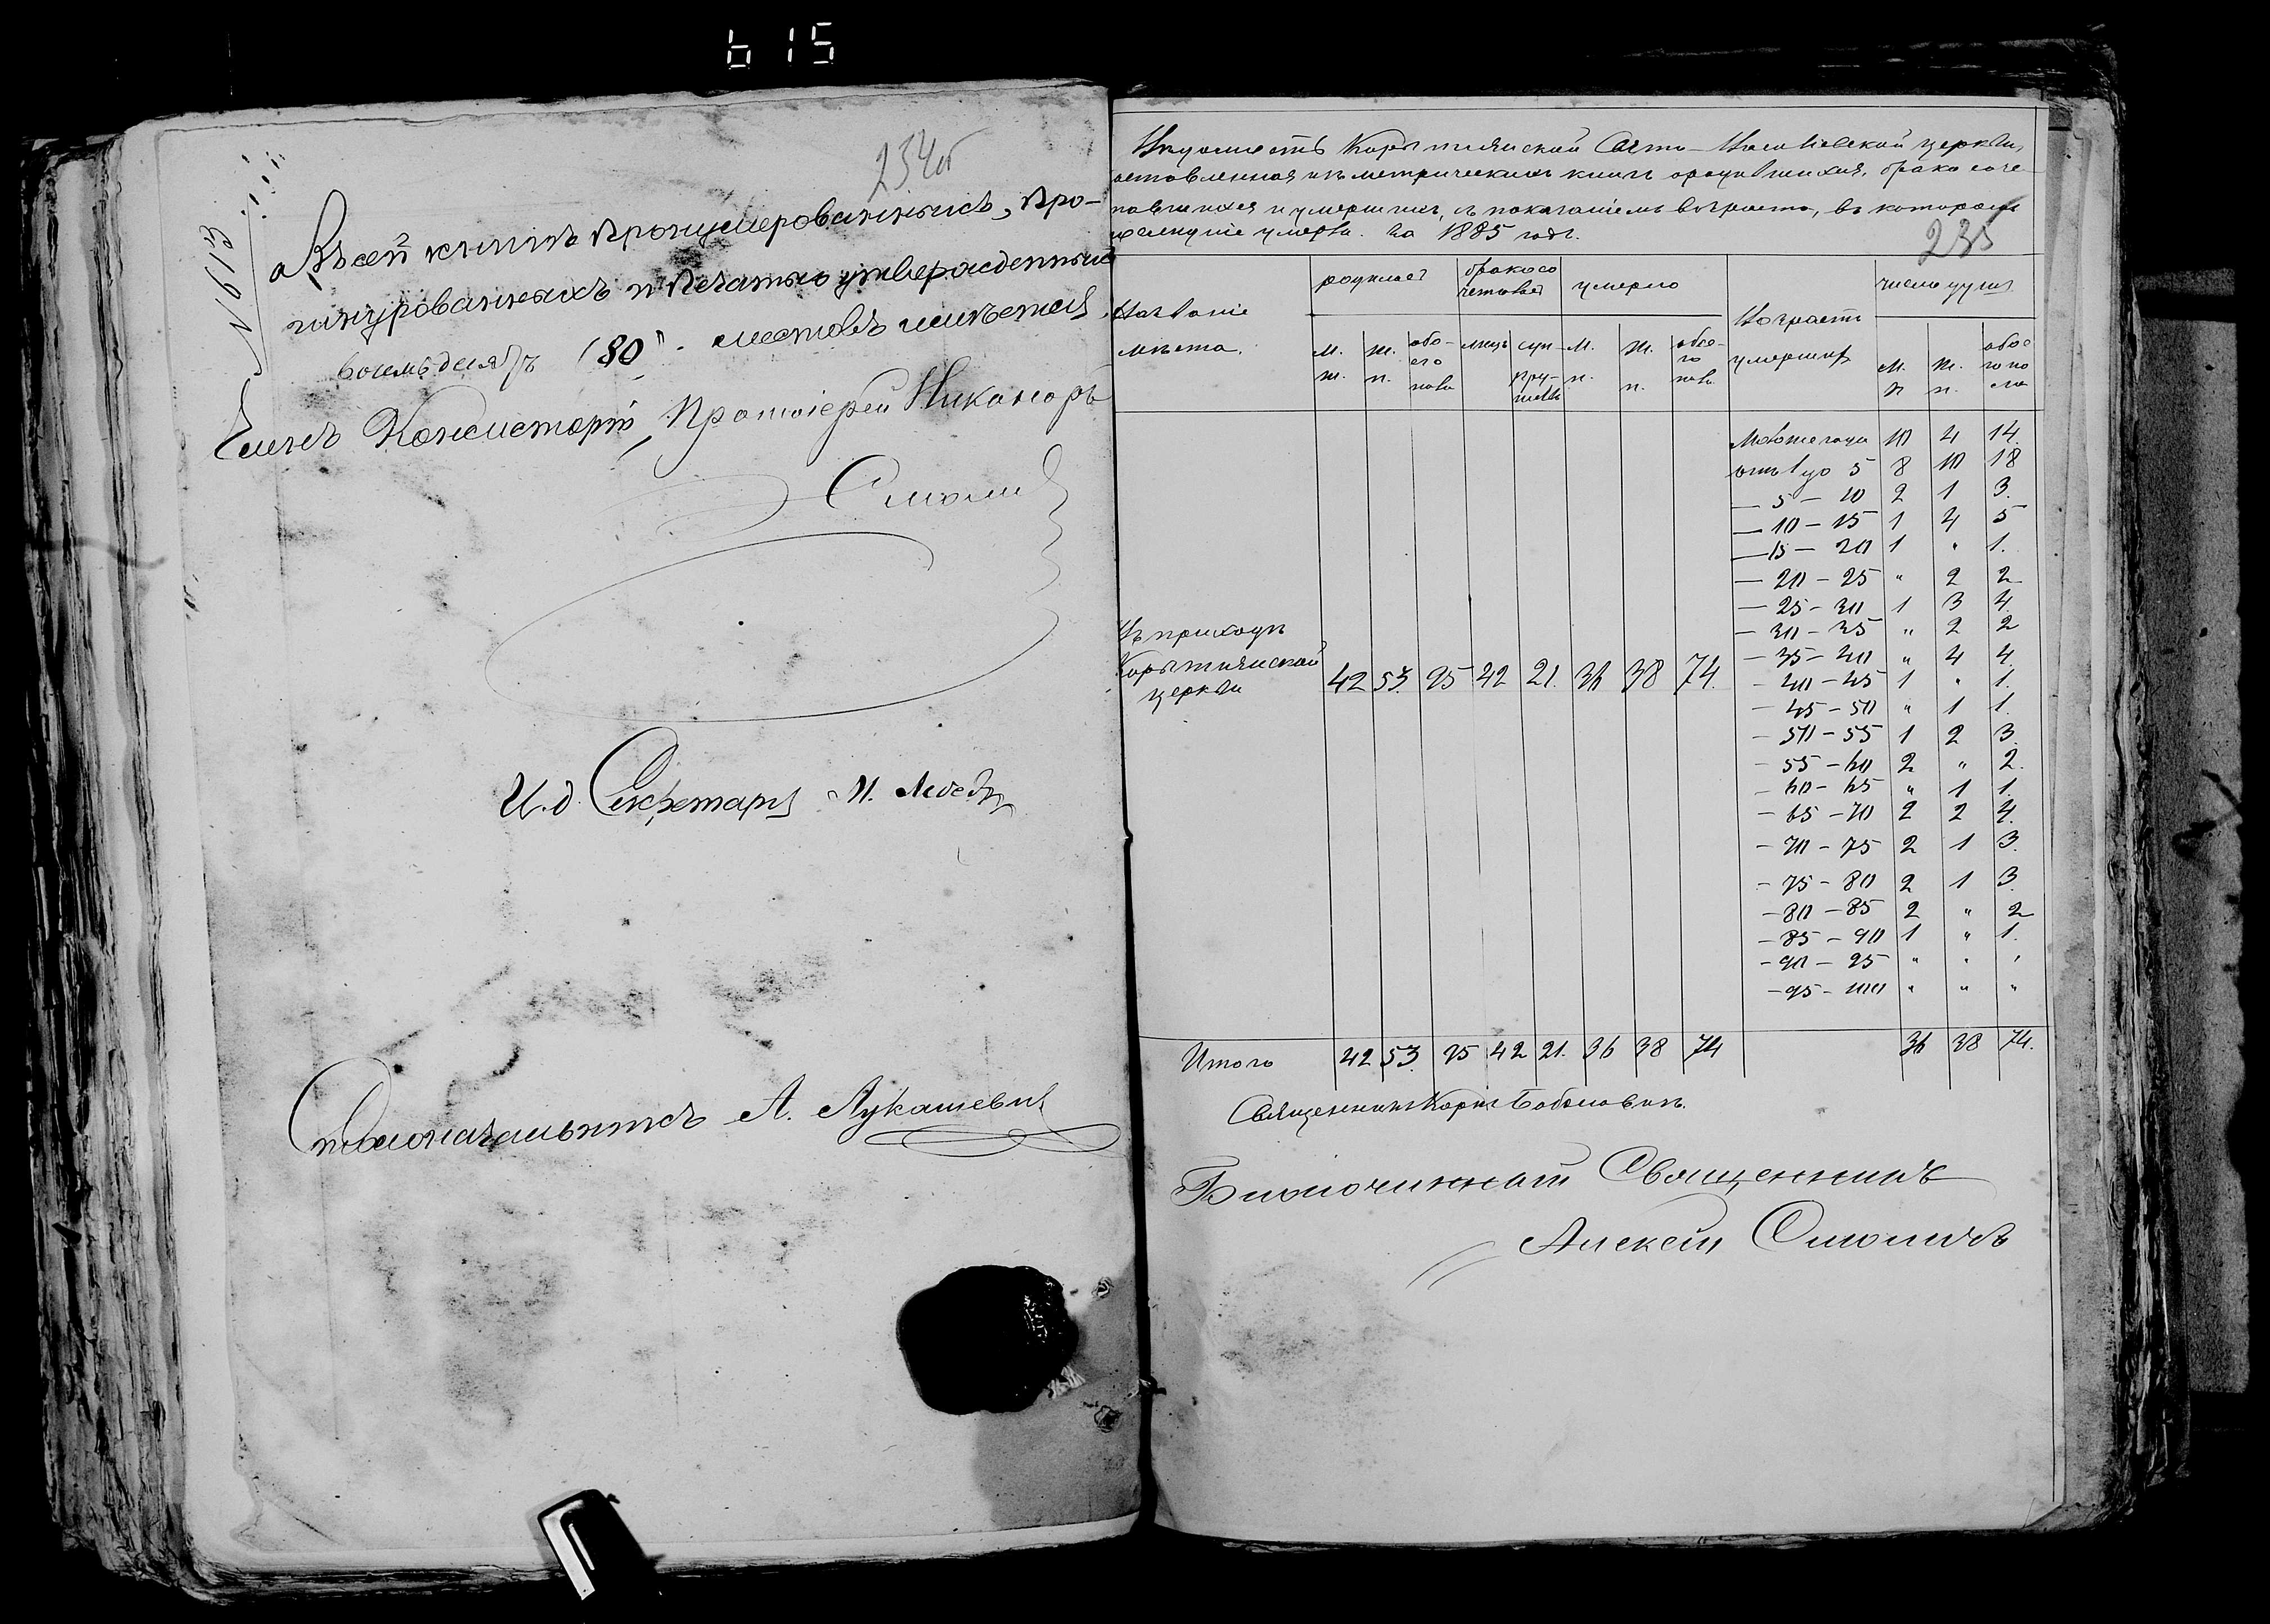 615
234об
№ 613
Въ сей книгѣ пронумерованныхъ, про-
шнурованныхъ и печатью утвержденныхъ
восемьдесятъ (80) листовъ имѣется
Членъ Консисторіи, Протоіерей Никаноръ
Смолич
И. д. Секретаря
Столоначальникъ А. Лукашевич
Вѣдомость Корытнянской Свято- церкви,
составленная изъ метрическихъ книгъ о родившихся, бракосоче-
тавшихся и умершихъ, съ показаніемъ возраста, въ которомъ
умерли. За 1885 годъ.
235
Названіе мѣста.
родилось
бракосочетовал
умерло
Возрастъ умершихъ
число душъ
м. п. ж. п. обоего пола лицъ супружествъ м. п. ж. п. обоего пола м. п. ж. п. обоего пола
Моложе года 10 4 14.
отъ 1 до 5 8 10 18
— 5 — 10 2 1 3.
— 10 — 15 1 4 5
— 15 — 20 1 " 1.
— 20 — 25 " 2 2
— 25 — 30 1 3 4.
— 30 — 35 " 2 2
— 35 — 40 " 4 4.
— 40 — 45 1 " 1.
— 45 — 50 " 1 1.
— 50 — 55 1 2 3.
— 55 — 60 2 " 2.
— 60 — 65 " 1 1.
— 65 — 70 2 2 4.
— 70 — 75 2 1 3.
— 75 — 80 2 1 3.
— 80 — 85 2 " 2
— 85 — 90 1 " 1.
— 90 — 95 " " "
— 95 — 100 " " "
Въ приходѣ
церкви 42 53. 95 42 21. 36 38 74.
Итого 42 53. 95 42 21. 36 38 74 36 38 74.
Священникъ
Благочинный Священникъ
Алексѣй Смоличъ